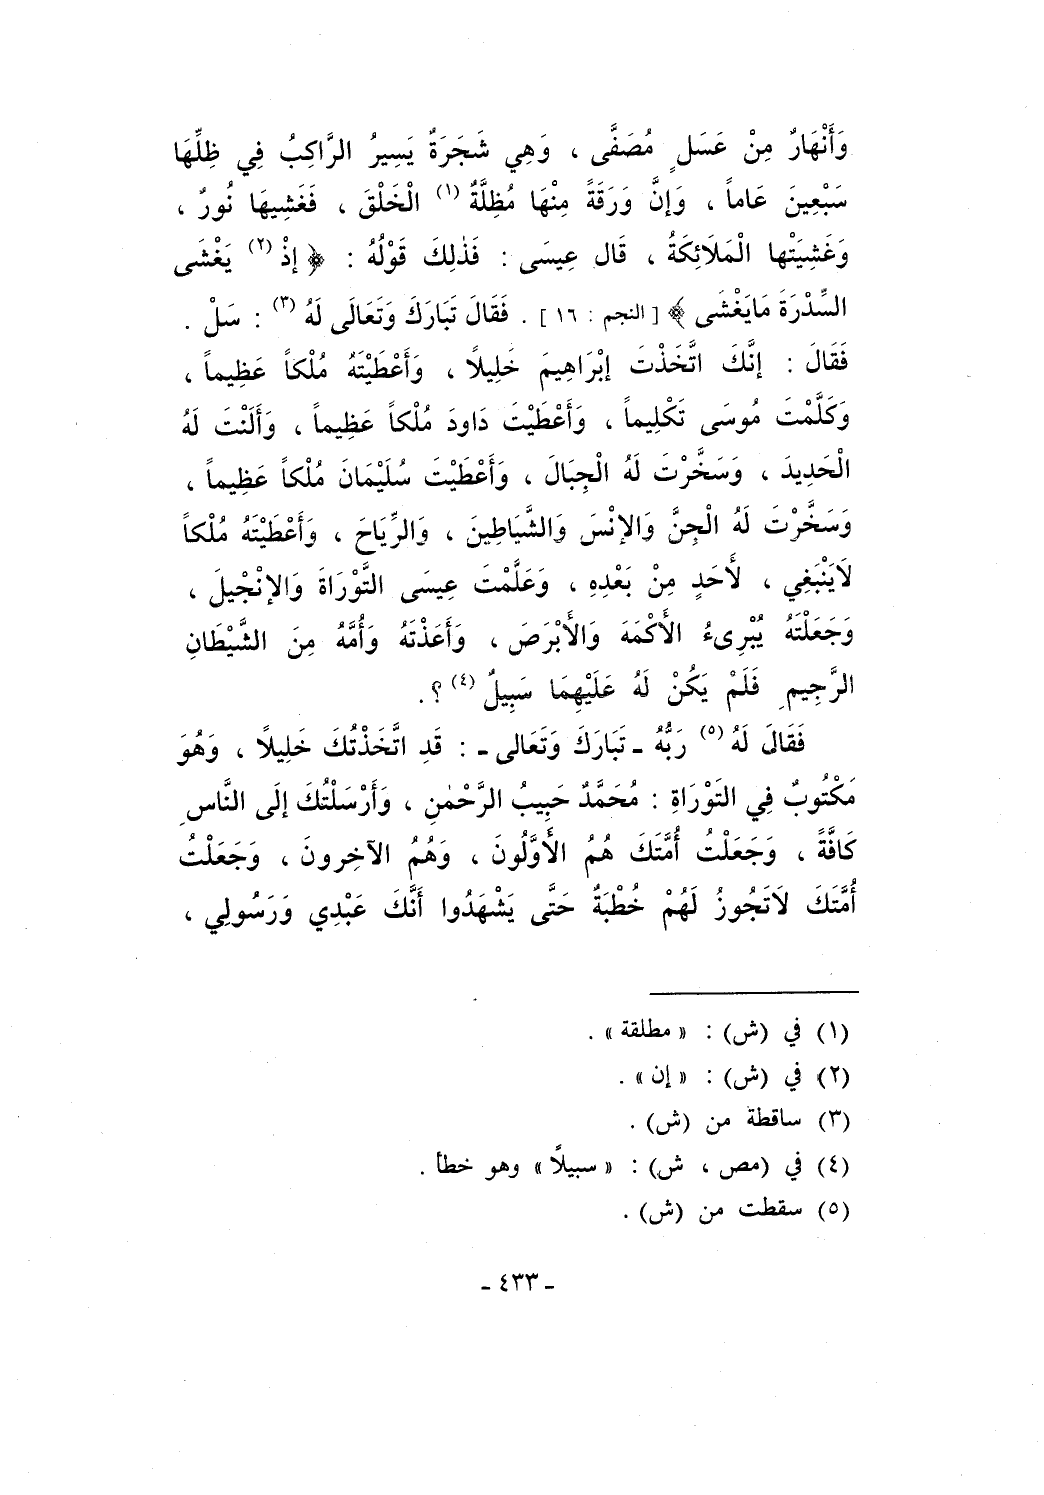 وَأَنْهَارٌ مِنْ عَسَلٍ مُصَفَّى ، وَهِي شَجَرَةٌ يَسِيرُ الرَّاكِبُ فِي ظِلِّهَا
سَبْعِينَ عَاماً ، وَإنَّ وَرَقَةً مِنْهَا مُظِلَّةٌ (١) الْخَلْقَ ، فَغَشِيهَا نُورٌ ،
وَغَشِيَتْها الْمَلَائِكَةُ ، قَال عِيسَى : فَذٰلِكَ قَوْلُهُ : ﴿ إذْ (٢) يَغْشَى
السِّدْرَةَ مَايَغْشَى ﴾ [ النجم : ١٦ ] . فَقَالَ تَبَارَكَ وَتَعَالَى لَهُ (٣) : سَلْ .
فَقَالَ : إنَّكَ اتَّخَذْتَ إبْرَاهِيمَ خَلِيلًا ، وَأَعْطَيْتَهُ مُلْكاً عَظِيماً ،
وَكَلَّمْتَ مُوسَى تَكْلِيماً ، وَأَعْطَيْتَ دَاودَ مُلْكاً عَظِيماً ، وَأَلَنْتَ لَهُ
الْحَدِيدَ ، وَسَخَّرْتَ لَهُ الْجِبَالَ ، وَأَعْطَيْتَ سُلَيْمَانَ مُلْكاً عَظِيماً ،
وَسَخَّرْتَ لَهُ الْجِنَّ وَالإنْسَ وَالشَّيَاطِينَ ، وَالرِّيَاحَ ، وَأَعْطَيْتَهُ مُلْكاً
لَايَنْبَغِي ، لأَحَدٍ مِنْ بَعْدِهِ ، وَعَلَّمْتَ عِيسَى التَّوْرَاةَ وَالإنْجْيلَ ،
وَجَعَلْتَهُ يُبْرِىءُ الأَكْمَهَ وَالأَبْرَصَ ، وَأَعَذْتَهُ وَأُمَّهُ مِنَ الشَّيْطَانِ
الرَّجِيمِ فَلَمْ يَكُنْ لَهُ عَلَيْهِمَا سَبِيلٌ (٤) ؟ .
فَقَالَ لَهُ (٥) رَبُّهُ ـ تَبَارَكَ وَتَعَالى ـ : قَدِ اتَّخَذْتُكَ خَلِيلًا ، وَهُوَ
مَكْتُوبٌ فِي التَوْرَاةِ : مُحَمَّدٌ حَبِيبُ الرَّحْمٰنِ ، وَأَرْسَلْتُكَ إلَى النَّاسِ
كَافَّةً ، وَجَعَلْتُ أُمَّتَكَ هُمُ الأَوَّلُونَ ، وَهُمُ الآخِرونَ ، وَجَعَلْتُ
أُمَّتَكَ لَاتَجُوزُ لَهُمْ خُطْبَةٌ حَتَّى يَشْهَدُوا أَنَّكَ عَبْدِي وَرَسُولِي ،
(١) في (ش) : « مطلقة » .
(٢) في (ش) : « إن » .
(٣) ساقطة من (ش) .
(٤) في (مص ، ش) : « سبيلًا » وهو خطأ .
(٥) سقطت من (ش) .
ـ ٤٣٣ ـ